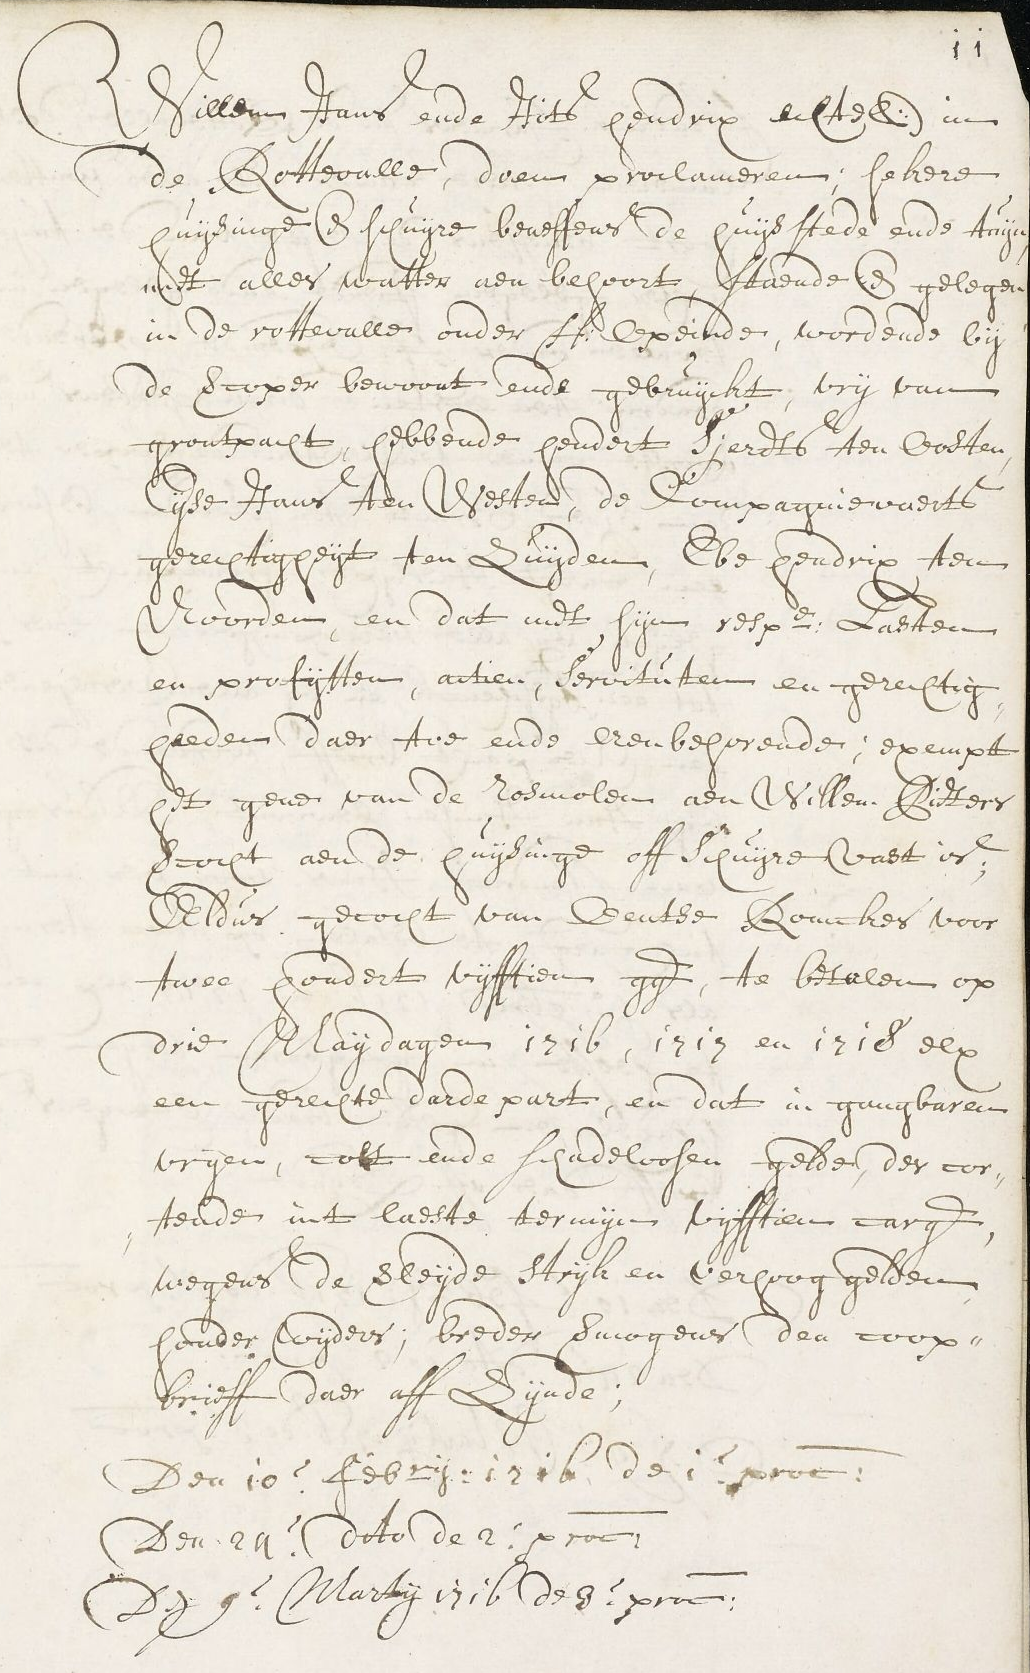 11
Willem Hans ende Hits hendrix echtel: in
de Rottevalle, doen proclameren; sekere
huijsinge en schuyre beneffens de huijs stede ende tuijn,
met alles watter aen behoort, staende en gelegen
in de rottevalle onder opeinde, wordende bij
de Coper bewoont ende gebruijckt, vrij van
grontpacht, hebbende hendert Sjerdts ten Oosten,
Eijse Hans ten Westen, de Compagnievaerts
gerechtigheijt ten Zuijden, Ebe hendrix ten
Noorden, en dat met sijn respe: Lasten
en profijtten, actien, Servituten en gerechtig„
heeden daer toe ende aenbehorende; exempt
het gene van de Rosmolen aen Willem Ritters
vercocht aen de huijsinge off schuijre vast is;
Aldus gecocht van Eentse Romckes voor
twee hondert vijfftien ggl, te betalen op
drie Maijdagen 1716, 1717 en 1718 elx
een gerechte darde part, en dat in gangbaren
vrijen, cost ende schadeloosen gelde, des cor„
„tende int laeste termijn vijfftien cargl,
wegens de bleijde strijk en verhoog gelden
sonder wijders; breder vermogens den coop„
brieff daer aff Zijnde;
Den 10e febrij: 1716 de 1e proc:
Den 24e dito de 2e proc:
Den 9e Martij 1716 de 3e proc: